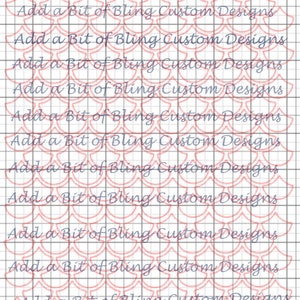 Add a Bit of Bling Custom Designs
Add a Bit of Bling Custom Designs
Add a Bit of Bling Custom Designs
Add a Bit of Bling Custom Designs
Add a Bit of Bling Custom Designs
Add a Bit of Bling Custom Designs
Add a Bit of Bling Custom Designs
Add a Bit of Bling Custom Designs
Add a Bit of Bling Custom Designs
Add a Bit of Bling Custom Designs
Add a Bit of Bling Custom Designs
Add a Bit of Bling Custom Designs